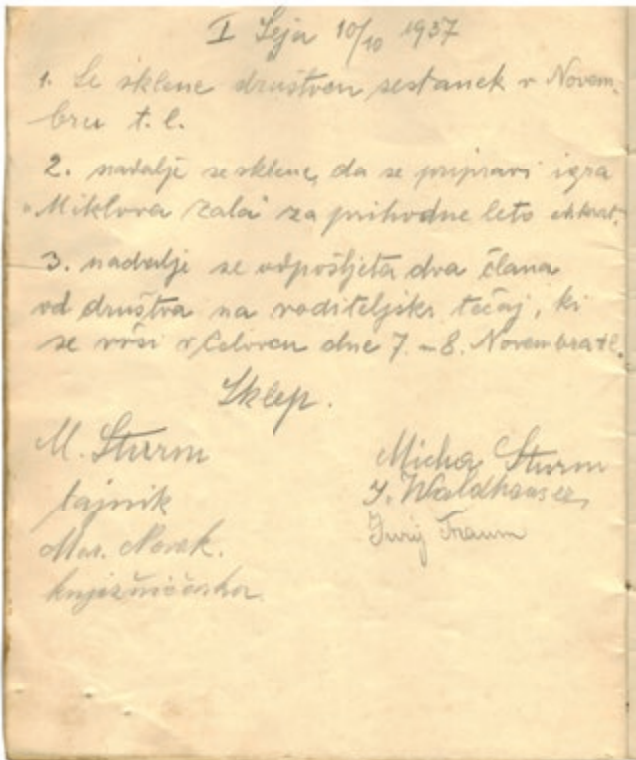 I Seja 10/10 1937
1. Se sklene društven sestanek v Novem-
bru t. l.
2. nadalje se sklene, da se pripravi igra
"Miklova Zala" za prihodne leto
3. nadalje se odpošljeta dva člana
od društva na voditeljski tečaj, ki
se vrši v Celovcu dne 7. - 8. Novembra t. l.
Sklep.
M. Sturm
tajnik
Mar. Novak.
knjižničarka
Micha Sturm
J. Waldhauser
Jurij Traum